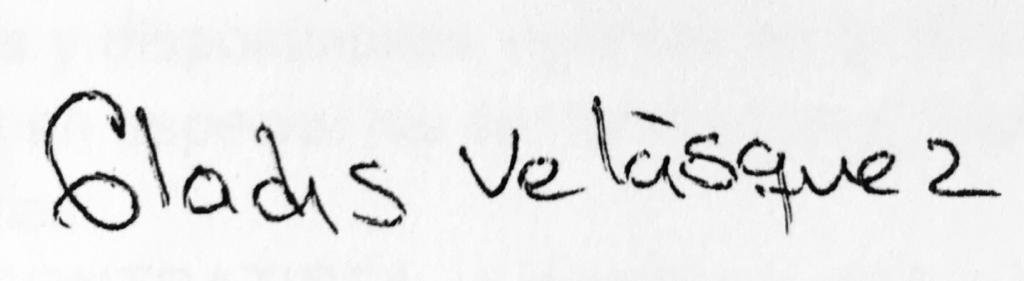 Gladis Velásquez